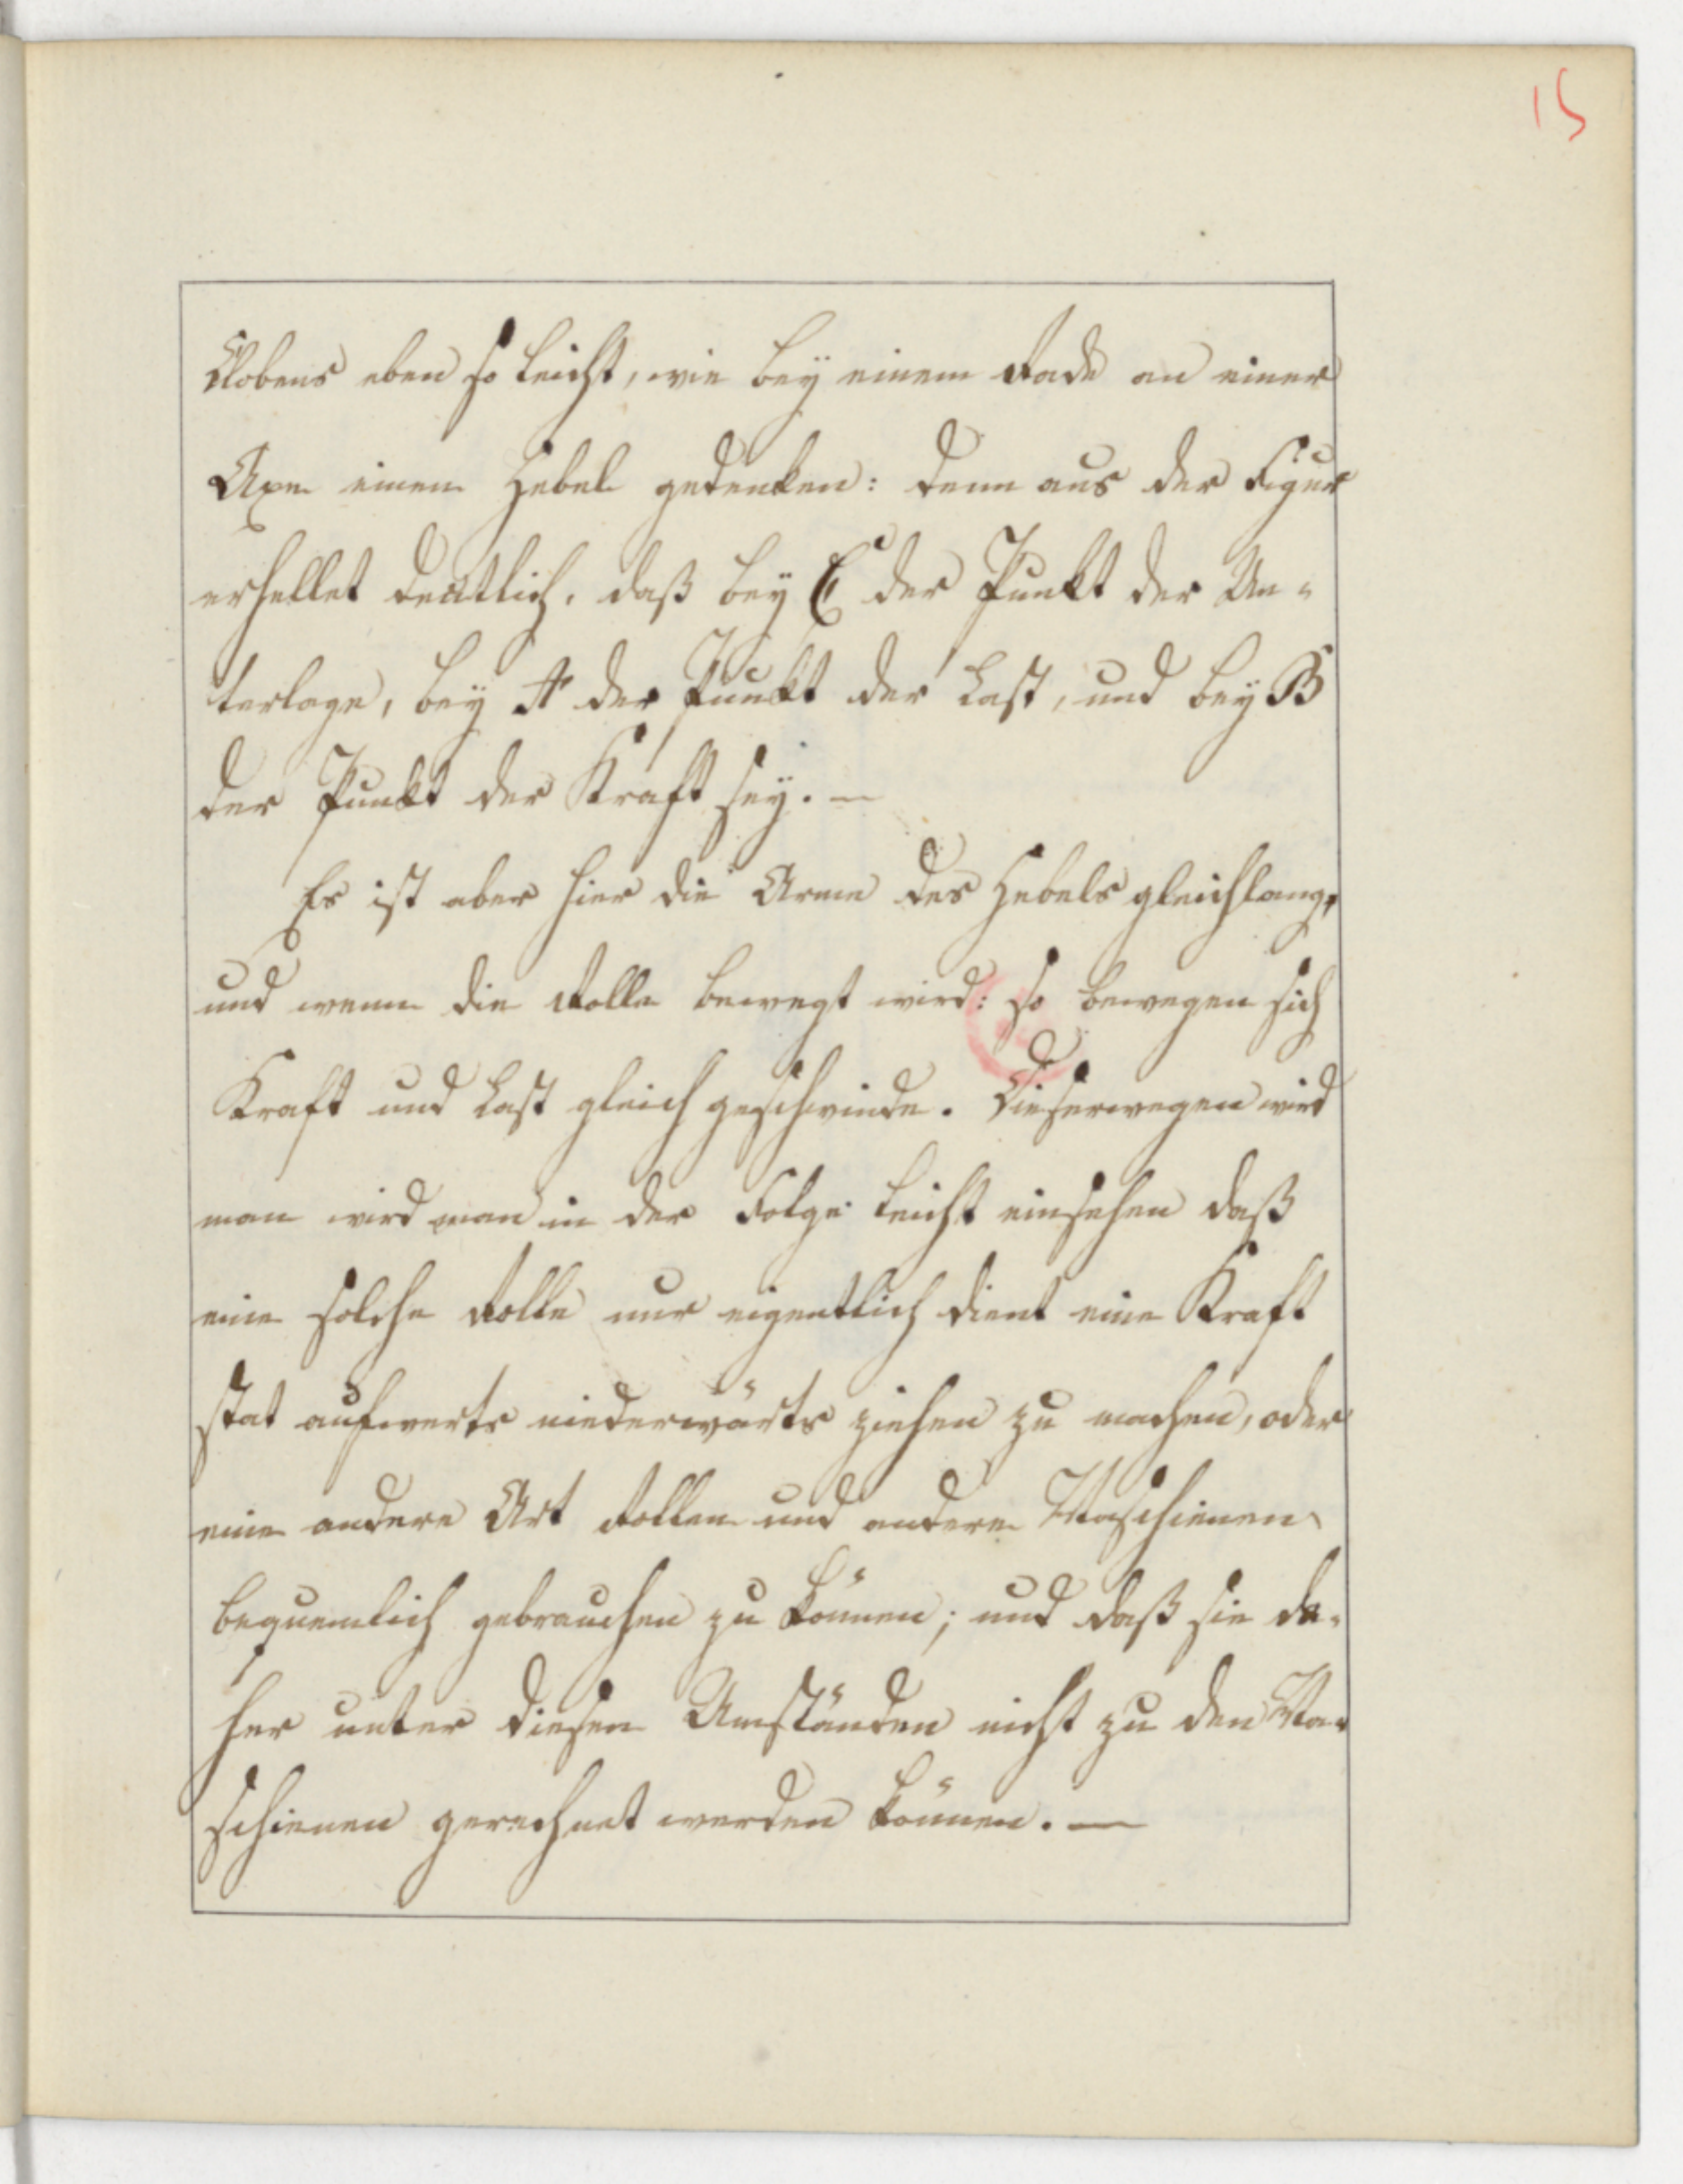 15
Klobens eben so leicht, wie bey einem Rade an einer
Axe einen Hebel gedenken: denn aus der Figur
erhellet deutlich, daß bey C der Punkt der Un-
terlage, bey A der Punkt der Last, und bey B
der Punkt der Kraft sey. —
Es ist aber hier die Arme des Hebels gleichlang,
und wenn die Rolle bewegt wird: so bewegen sich
Kraft und Last gleich geschwinde. Dieserwegen wird
man wird man in der Folge leicht einsehen daß
eine solche Rolle nur eigentlich dient eine Kraft
stat aufwerts niederwärts ziehen zu machen, oder
eine andere Art Rollen und andere Maschienen
bequemlich gebrauchen zu können; und daß sie da-
her unter diesen Umständen nicht zu den Ma-
schienen gerechnet werden können. —